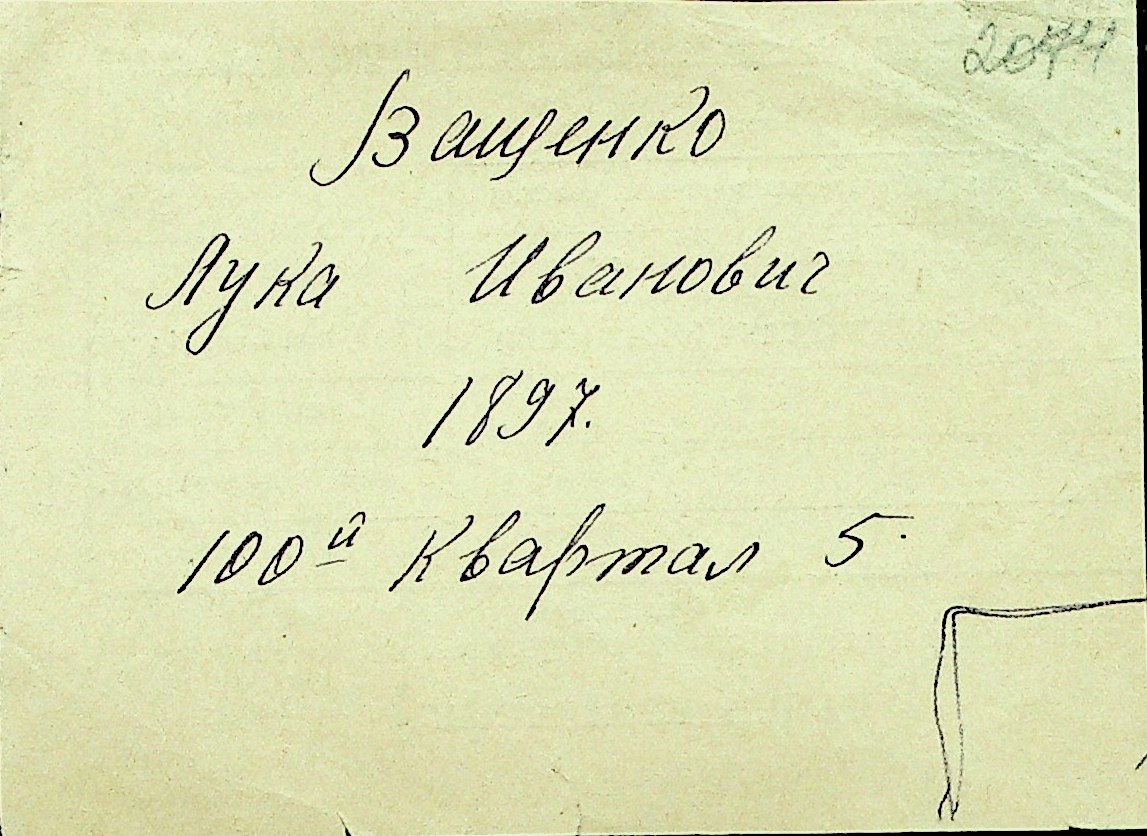 2044
Ващенко
Лука Иванович
1897.
100й Квартал 5.